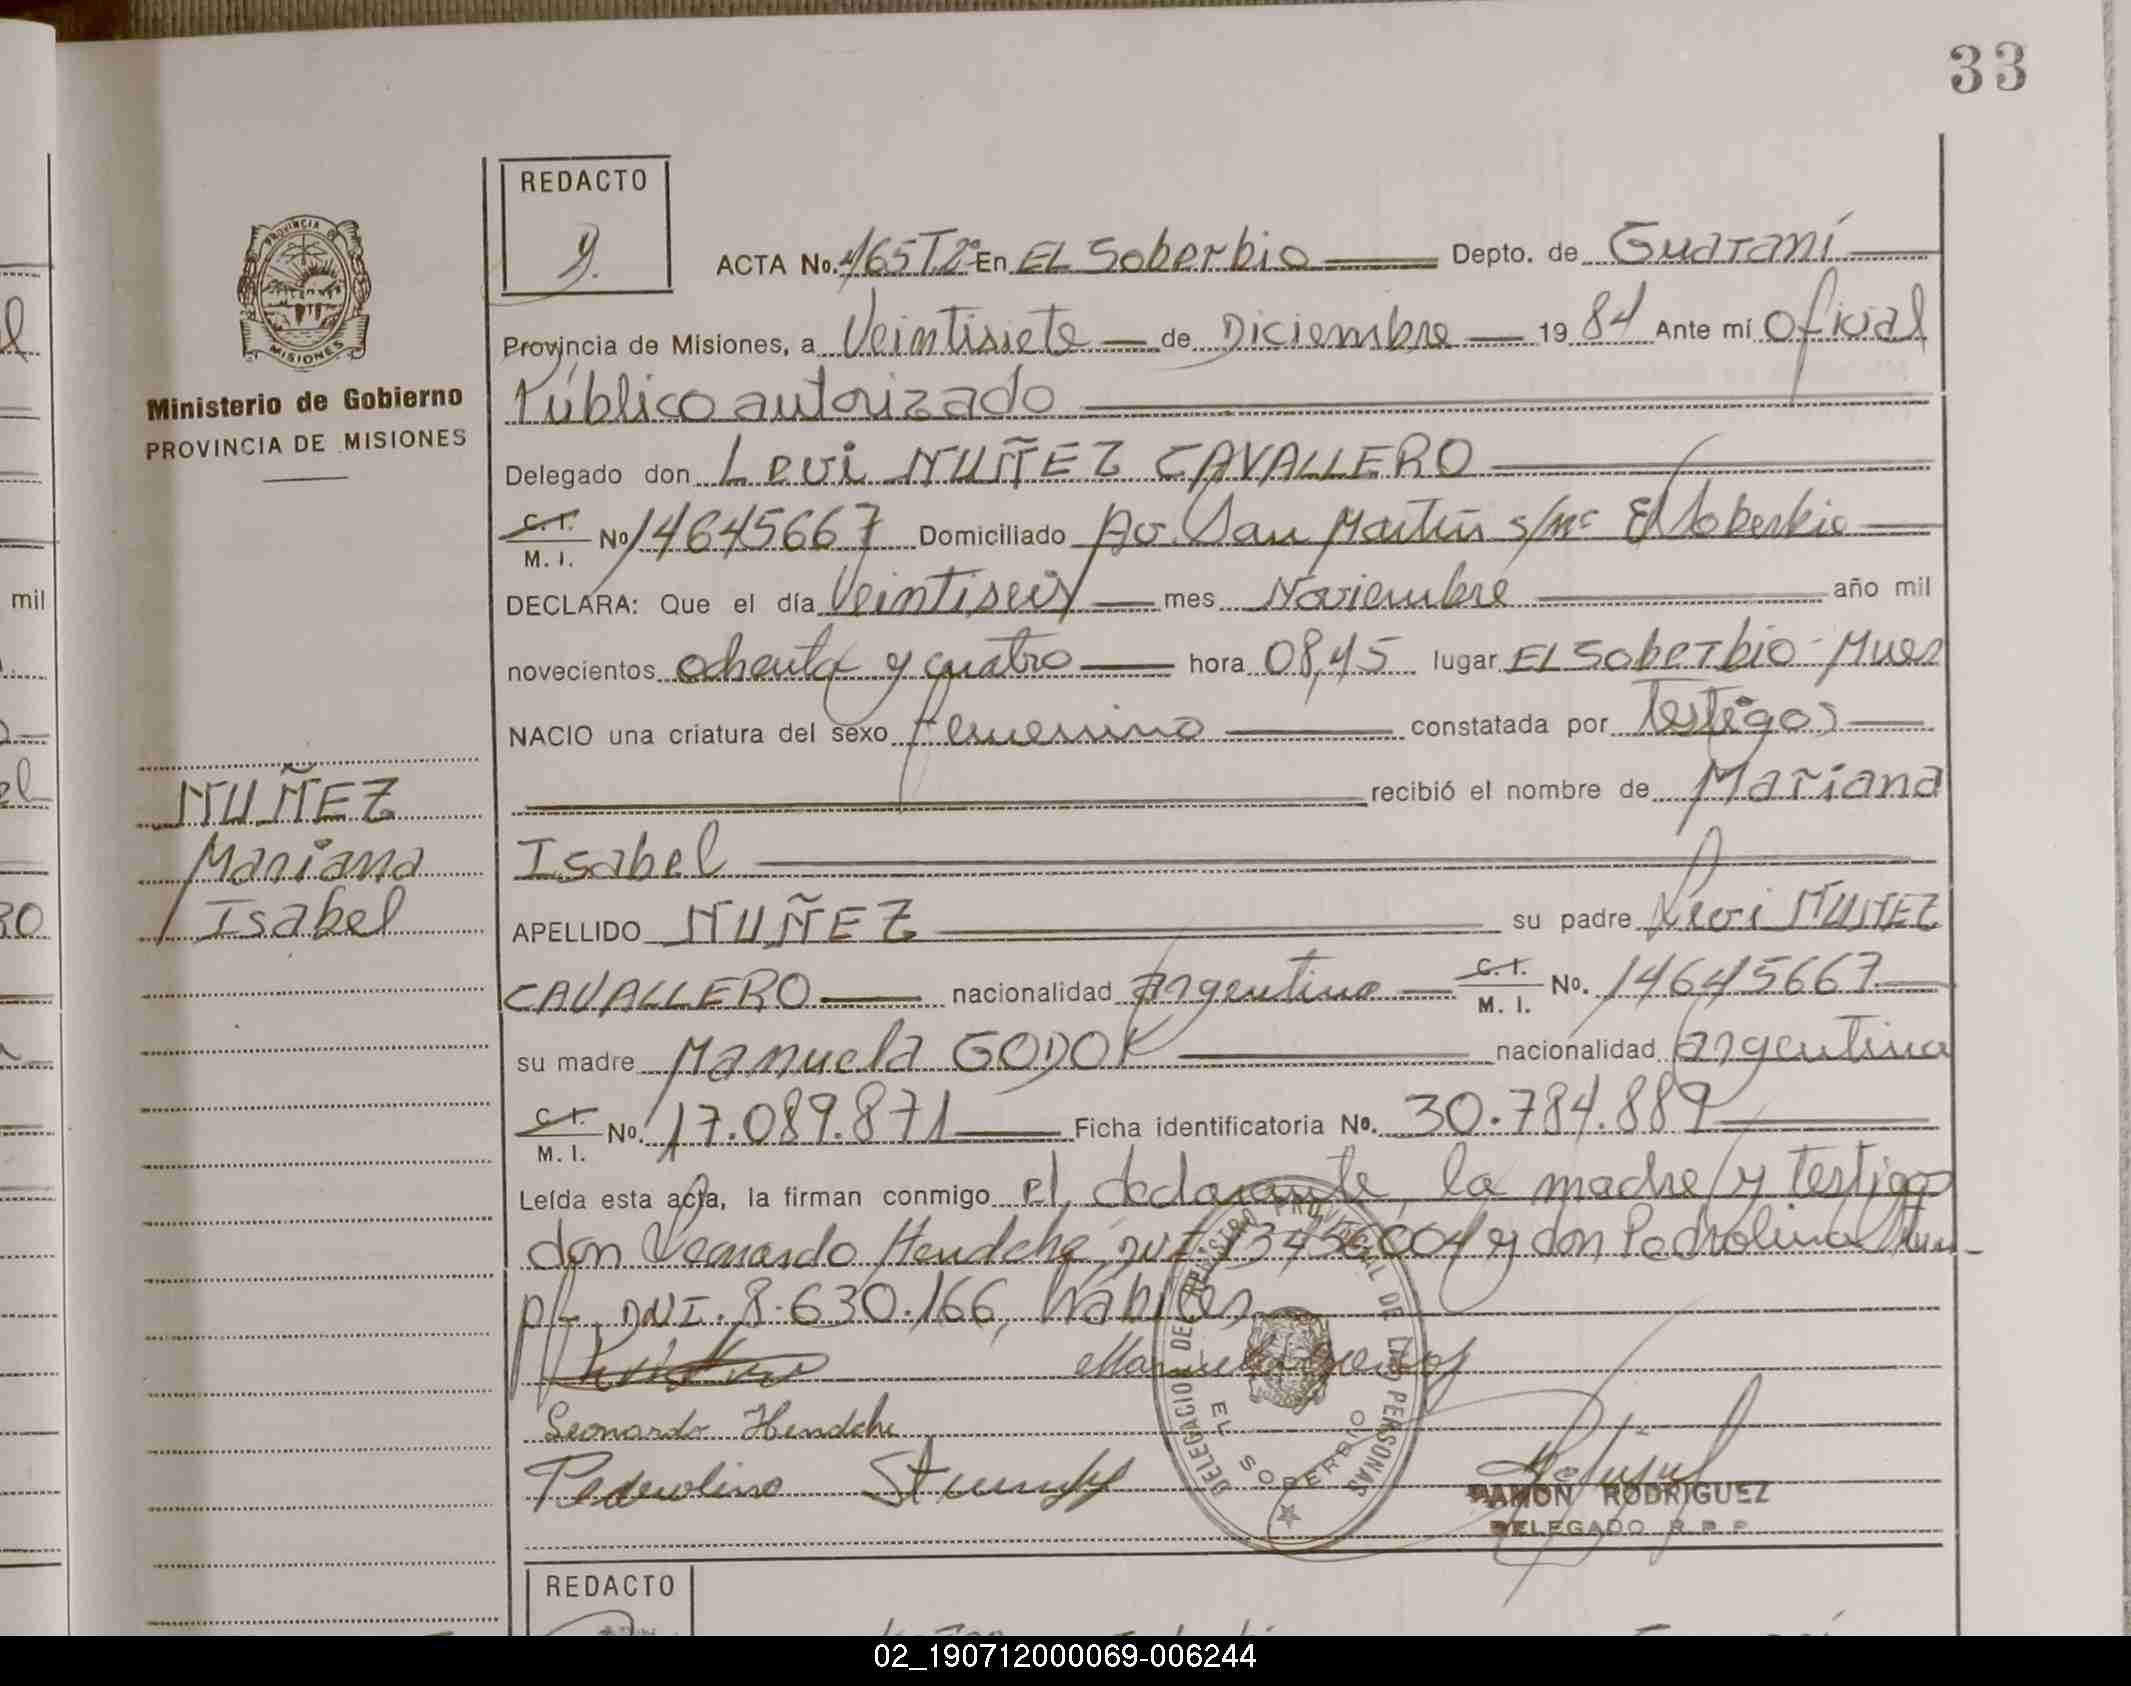 33
REDACTO
PROVINCIA DE
MISIONES
Ministerio de Gobierno
PROVINCIA DE MISIONES
ACTA No. 465 T.2º En EL Soberbio Depto. de Guaraní
Provincia de Misiones, a Veintisiete de Diciembre 1984 Ante mí Oficial
Público autorizado
Delegado don Levi NUÑEZ CAVALLERO
C. I. / M. I. No 14645667 Domiciliado Av. San Martín s/nº El Soberbio
DECLARA: Que el día Veintiseis mes Noviembre año mil
novecientos ochenta y cuatro hora 08,45 lugar EL Soberbio - Mnes
NACIO una criatura del sexo femenino constatada por Testigos
recibió el nombre de Mariana
Isabel
APELLIDO NUÑEZ su padre Levi NUÑEZ
CAVALLERO nacionalidad Argentina C. I. / M. I. No. 14645667
su madre Manuela GODOY nacionalidad argentina
C. I. / M. I. No. 17.089.871 Ficha identificatoria No. 30.784.889
Leída esta acta, la firman conmigo el declarante, la madre y testigos
don Leonardo Hendche, DNI 13456004 y don Pedrolino Stum-
pf, DNI. 8.630.166, hábiles
Manuela Godoy
Leonardo Hendche
Pedrolino Stumpf
NUÑEZ
Mariana
Isabel
DELEGACION DEL REGISTRO PROVINCIAL DE LAS PERSONAS
EL SOBERBIO
RAMON RODRIGUEZ
DELEGADO R. P. P.
REDACTO
mil
02_190712000069-006244